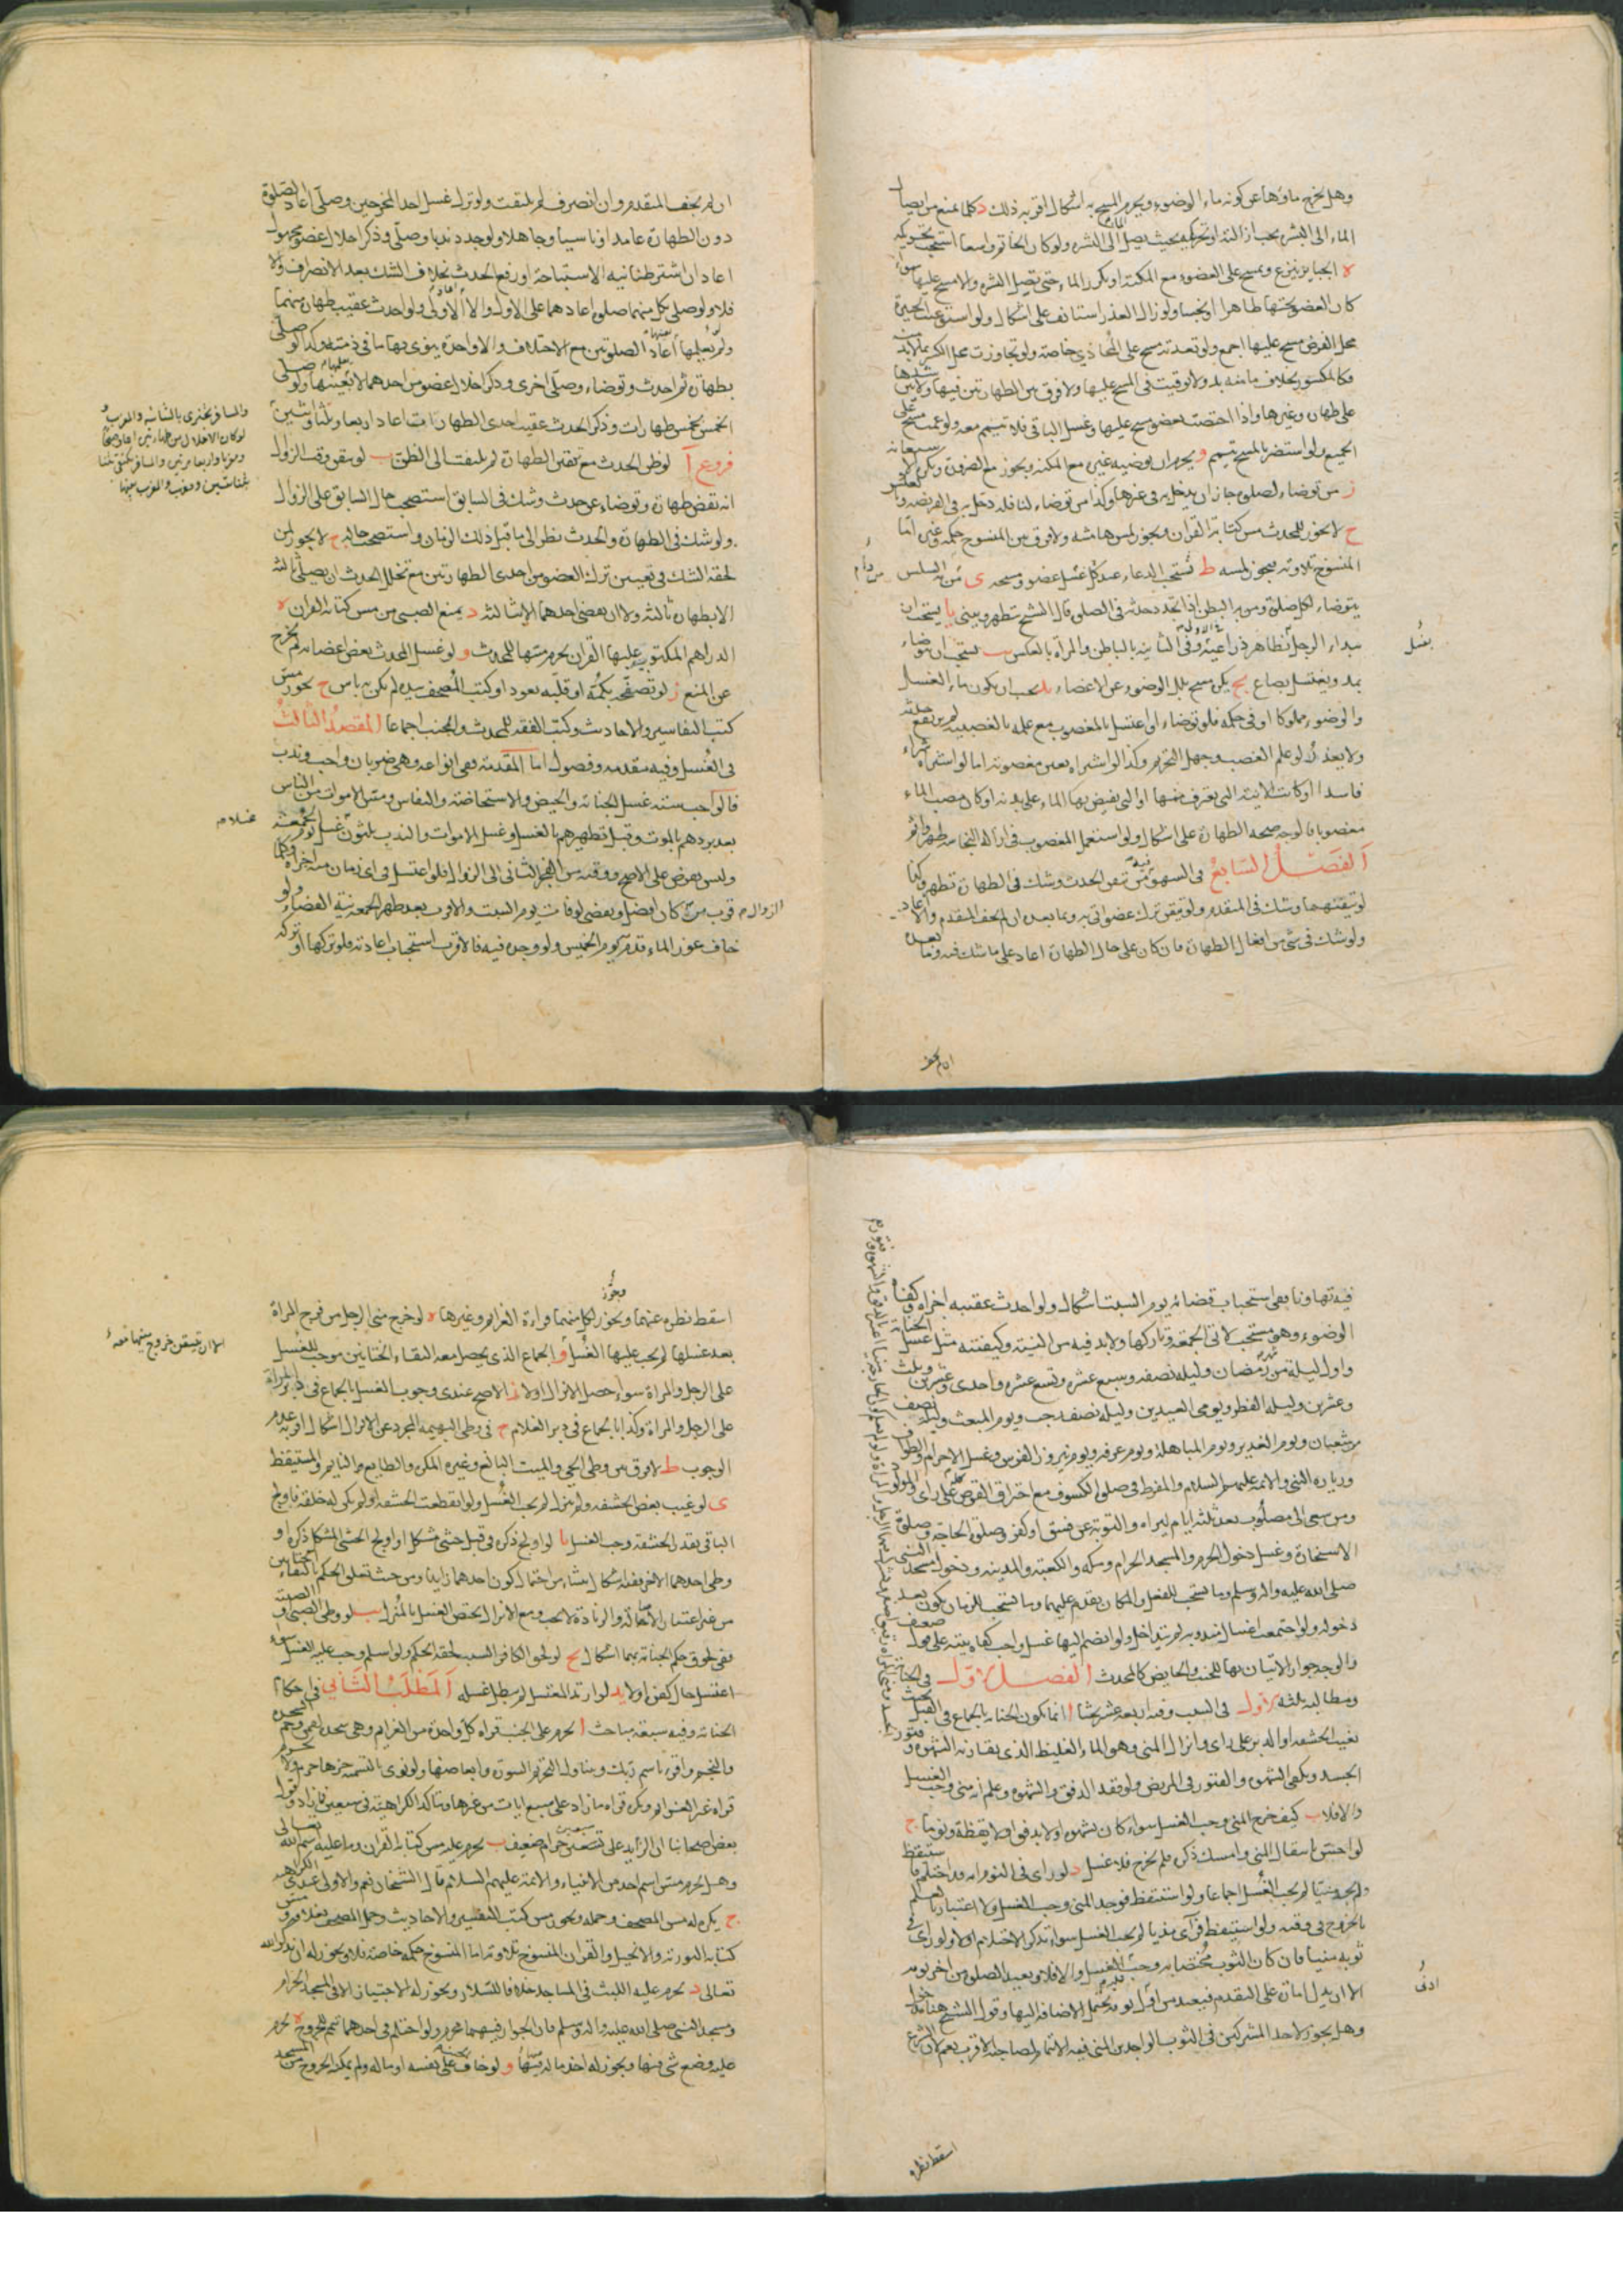 وهل يخرج ماؤها عن كونه ماء الوضوء ويحرم المسح به اشكال اقربه ذلك د كلما يمنع من ايصال
الماء الى البشرة يجب ازالته او تحريكه بحيث يصل الماء الى البشره ولو كان الخاتم واسعا استحب تحريكه
ه الجباير ينزع ويمسح على العضو مع المكنة او يكرر الماء حتى يصل البشره والا مسح عليها سواء
كان العضو تحتها طاهرا او نجسا ولو زال العذر استانف على اشكال ولو استوعبت الجبيرة
محل الفرض مسح عليها اجمع ولو تعددت مسح على المحاذي خاصة ولو تجاوزت محل الكسر بما لابد منه
فكالمكسور بخلاف ما منه بد ولا توقيت في المسح عليها ولا فرق بين الطهارتين فيها ولا بين شدها
على طهارة وغيرها واذا اختصت بعضو مسح عليها وغسل الباقي فلا تيمم معه ولو عمت مسح على
الجميع ولو استضر بالمسح تيمم و يحرم ان يوضيه غيره مع المكنة ويجوز مع الضرورة ويكره الاستعانة
ز من توضاء لصلوة جاز ان يدخل به في غيرها وكذا من توضاء لنافلة دخل به في الفريضة وبالعكس
ح لا يجوز للمحدث مس كتابة القران ويجوز لمس هامشه ولا فرق بين المنسوخ حكمه وغيره اما
المنسوخ تلاوته فيجوز لمسه ط يستحب الدعاء عند كل غسل عضو ومسحه ى من به السلس
يتوضاء لكل صلوة ومن به البطن اذا تجدد حدثه في الصلوة قال الشيخ يتطهر ويبني يا يستحب ان
يبداء الرجل بظاهر ذراعيه وفي الثانية بالباطن والمراة بالعكس يب يستحب ان يتوضاء
بمد ويغتسل بصاع يج يكره مسح بلل الوضوء عن الاعضاء يد يجب ان يكون ماء الغسل
والوضوء مملوكا او في حكمه فلو توضاء او اغتسل بالمغصوب مع علمه بالغصبية لم يرتفع حدثه
ولا يعذر لو علم الغصب وجهل التحريم وكذا لو اشتراه بعين مغصوبة اما لو اشتراه شراء
فاسدا او كانت الانية التي يغترف منها او التي يفيض بها الماء على بدنه او كان مصب الماء
مغصوبا فالوجه صحة الطهارة على اشكال ولو استعمل المغصوب في ازالة النجاسة طهر واثم
الفصل السابع في السهو فيه من تيقن الحدث وشك في الطهارة تطهر وكذا
لو تيقنهما وشك في المتقدم ولو تيقن ترك عضو اتى به وبما بعده ان لم يجف المتقدم والا اعاد
ولو شك في شئ من افعال الطهارة فان كان على حال الطهارة اعاد على ما شك فيه وما بعده
ان لم يجف
يغسل
ان لم يجف المتقدم وان انصرف لم يلتفت ولو ترك غسل احد المخرجين وصلى اعاد الصلوة
دون الطهارة عامدا او ناسيا وجاهلا ولو جدد ندبا وصلى وذكر اخلال عضو مجهول
اعاد ان اشترطنا نية الاستباحة او رفع الحدث بخلاف الشك بعد الانصراف والا
فلا ولو صلى بكل منهما صلوة اعادهما على الاول والا الاولى ولو احدث عقيب طهارة منهما
ولم يعلمها اعاد الصلوتين مع الاختلاف والا واحدة ينوى بها ما في ذمته وكذا لو صلى
بطهارة ثم احدث وتوضاء وصلى اخرى وذكر اخلال عضو من احدهما لا بعينها ولو صلى
الخمس بخمس طهارات وذكر الحدث عقيب احدى الطهارات اعاد اربعا وثلثا واثنين
فروع ا لو ظن الحدث مع تيقن الطهارة لم يلتفت الى الظن ب لو تيقن وقت الزوال
انه نقض طهارة وتوضاء عن حدث وشك في السابق استصحب حال السابق على الزوال
ولو شك في الطهارة والحدث نظر الى ما قبل ذلك الزمان واستصحب حاله ج لا يجوز لمن
لحقه الشك في تعيين ترك العضو من احدى الطهارتين مع تخلل الحدث ان يصلى ثالثة
الا بطهارة ثالثة ولا ان يقضى احدهما الا بثالثة د يمنع الصبي من مس كتابة القران ه
الدراهم المكتوب عليها القران يحرم مسها للمحدث و لو غسل المحدث بعض اعضائه لم يخرج
عن المنع ز لو تصفحه بكمه او قلبه بعود او كتب المصحف بيده لم يكن به باس ح يجوز مس
كتب التفاسير والاحاديث وكتب الفقه للمحدث والجنب اجماعا المقصد الثالث
في الغسل وفيه مقدمة وفصول اما المقدمة ففي انواعه وهي ضربان واجب وندب
فالواجب ستة غسل الجنابة والحيض والاستحاضة والنفاس ومس الاموات من الناس
بعد بردهم بالموت وقبل تطهيرهم بالغسل وغسل الاموات والندب ثلثون غسل يوم الجمعة
وليس بفرض على الاصح ووقته من الفجر الثاني الى الزوال فلو اغتسل في اى زمان منه اجزاه وكلما
قرب من الزوال كان افضل ويقضى لو فات يوم السبت والاقرب بعد ظهر الجمعة نية القضاء ولو
خاف عوز الماء قدمه يوم الخميس ولو وجده فيه فالاقرب استحباب اعادته فلو تركها او تركه
والمسافر يجتزى بالثنائيه والمغرب
لو كان الاخلال من طهارتين اعاد صبحا
ومغربا واربعا مرتين والمسافر يكتفى هنا
بثنائيتين ومغرب والمغرب بينهما
فيه تهاونا ففي استحباب قضائه يوم السبت اشكال ولو احدث عقيبه اجزاه وكفاه
الوضوء وهو مستحب لاتي الجمعة وتاركها ولابد فيه من النية وكيفيته مثل غسل الجنابة
واول ليلة من شهر رمضان وليلة نصفه وسبع عشره وتسع عشره واحدى وعشرين وثلث
وعشرين وليلة الفطر ويومى العيدين وليلة نصف رجب ويوم المبعث وليلة نصف
من شعبان ويوم الغدير ويوم المباهلة ويوم عرفه ويوم نيروز الفرس وغسل الاحرام والطواف
وزيارة النبي والائمة عليهم السلام والمفرط في صلوة الكسوف مع احتراق القرص كله على راى والمولود
ومن سعى الى مصلوب بعد ثلثة ايام ليراه والتوبة عن فسق او كفر وصلوة الحاجة وصلوة
الاستخارة وغسل دخول الحرم والمسجد الحرام ومكة والكعبة والمدينة ودخول مسجد النبى
صلى الله عليه واله وسلم وما يستحب للفعل والمكان يقدم عليهما وما يستحب للزمان يكون بعد
دخوله ولو اجتمعت اغسال مندوبة لم تتداخل ولو انضم اليها غسل واجب كفاه نيته على قول ضعيف
والوجه جواز الاتيان بها للجنب والحايض كالمحدث الفصل الاول في الجنابة
ومطالبه ثلثة الاول في السبب وفيه اربعة عشر بحثا ا انما تكون الجنابة بالجماع في القبل بحيث
تغيب الحشفه او الدبر على راى وانزال المنى وهو الماء الغليظ الذى يقارنه الشهوة وفتور
الجسد ويكفى الشهوة والفتور في المريض ولو فقد الدفق والشهوة وعلم انه منى وجب الغسل
والا فلا ب كيف خرج المنى وجب الغسل سواء كان بشهوة او لا بدفق او لا يقظة ونوما ج
لو احتس بانتقال المنى وامسك ذكره فلم يخرج فلا غسل د لو راى في النوم انه قد احتلم فاستيقظ
ولم يجد منيا لم يجب الغسل اجماعا ولو استيقظ فوجد المنى وجب الغسل ولا اعتبار بالعلم
بالخروج في وقته ولو استيقظ فراى مذيا لم يجب الغسل سواء تذكر الاحتلام او لا ولو راى في
ثوبه منيا فان كان الثوب مختصا به وجب الغسل والا فلا ويعيد الصلوة من اخر نومه
الا ان يدل امارة على التقدم فيعيد من اول نومة يحتمل الاضافة اليها وقول الشيخ هنا مدخول
وهل يجوز لاحد المشتركين في الثوب الواجدين المنى فيه الايتمام لصاحبه الاقرب نعم لان الشرع
اسقط نظره
ادنى
اسقط نظره عنهما ويجوز لكل منهما قراءة العزايم وغيرها ه لو خرج منى الرجل من فرج المراة
بعد غسلها لم يجب عليها الغسل و الجماع الذى يحصل معه التقاء الختانين موجب للغسل
على الرجل والمراة سواء حصل الانزال او لا ز الاصح عندى وجوب الغسل بالجماع في دبر المراة
على الرجل والمراة وكذا بالجماع في دبر الغلام ح في وطى البهيمة المجرد عن الانزال اشكال اقربه عدم
الوجوب ط لا فرق بين وطى الحي والميت البالغ وغيره المكره والطايع والنايم والمستيقظ
ى لو غيب بعض الحشفه ولم ينزل لم يجب الغسل ولو انقطعت الحشفه او لم يكن له خلقة فاولج
الباقي بقدر الحشفة وجب الغسل يا لو اولج ذكره في قبل خنثى مشكل او اولج الخنثى المشكل ذكره او
وطى احدهما الاخر ففيه اشكال ينشاء من احتمال كون احدهما زايدا ومن حيث تعلق الحكم بالتقاء الختانين
من غير اعتبار الاصالة والزيادة لا يجب ومع الانزال يختص الغسل بالمنزل يب لو وطى الصبي او الصبية
ففي لحوق حكم الجنابة بهما اشكال يج لو لحق الكافر السبب لحقه الحكم ولو اسلم وجب عليه الغسل سواء
اغتسل حال كفره او لا يد لو ارتد المغتسل لم يبطل غسله المطلب الثاني في احكام
الجنابة وفيه سبعة مباحث ا يحرم على الجنب قراءة كل واحدة من العزايم وهي سجدة لقمن وحم السجدة
والنجم واقرء باسم ربك ويتناول التحريم السورة وابعاضها ولو نوى بالتسمية جزها حرم ولا يحرم
قراءة غير العزايم ويكره قراءة ما زاد على سبع ايات من غيرها ويتاكد الكراهية في سبعين فما زاد وقول
بعض اصحابنا ان الزايد على سبعين حرام ضعيف ب يحرم عليه مس كتابة القران وما عليه اسم الله تعالى
وهل يحرم مس اسم احد من الانبياء والائمة عليهم السلام قال الشيخان نعم والاولى عندى الكراهه
ج يكره له مس المصحف وحمله ويجوز مس كتب التفسير والاحاديث وحمل المصحف بغلافه ومس
كتابة التورية والانجيل والقران المنسوخ تلاوته اما المنسوخ حكمه خاصة فلا ويجوز له ان يذكر الله
تعالى د يحرم عليه اللبث في المساجد خلافا لسلار ويجوز له الاجتياز الا في المسجد الحرام
ومسجد النبي صلى الله عليه واله وسلم فان الجواز فيهما محرم ولو احتلم في احدهما تيمم للخروج ه يحرم
عليه وضع شئ فيها ويجوز له اخذ ما له منها و لو خاف على نفسه او ماله ولم يمكنه الخروج من المسجد
الا ان يتيقن خروج منيها معه